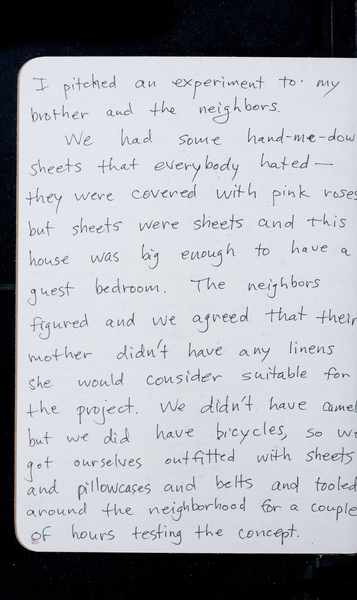 I pitched an experiment to my
brother and the neighbors.
We had some hand-me-dow
sheets that everybody hated—
they were covered with pink roses
but sheets were sheets and this
house was big enough to have a
guest bedroom. The neighbors
figured and we agreed that their
mother didn't have any linens
she would consider suitable for
the project. We didn't have camel
but we did have bicycles, so we
got ourselves outfitted with sheets
and pillowcases and belts and tooled
around the neighborhood for a couple
of hours testing the concept.